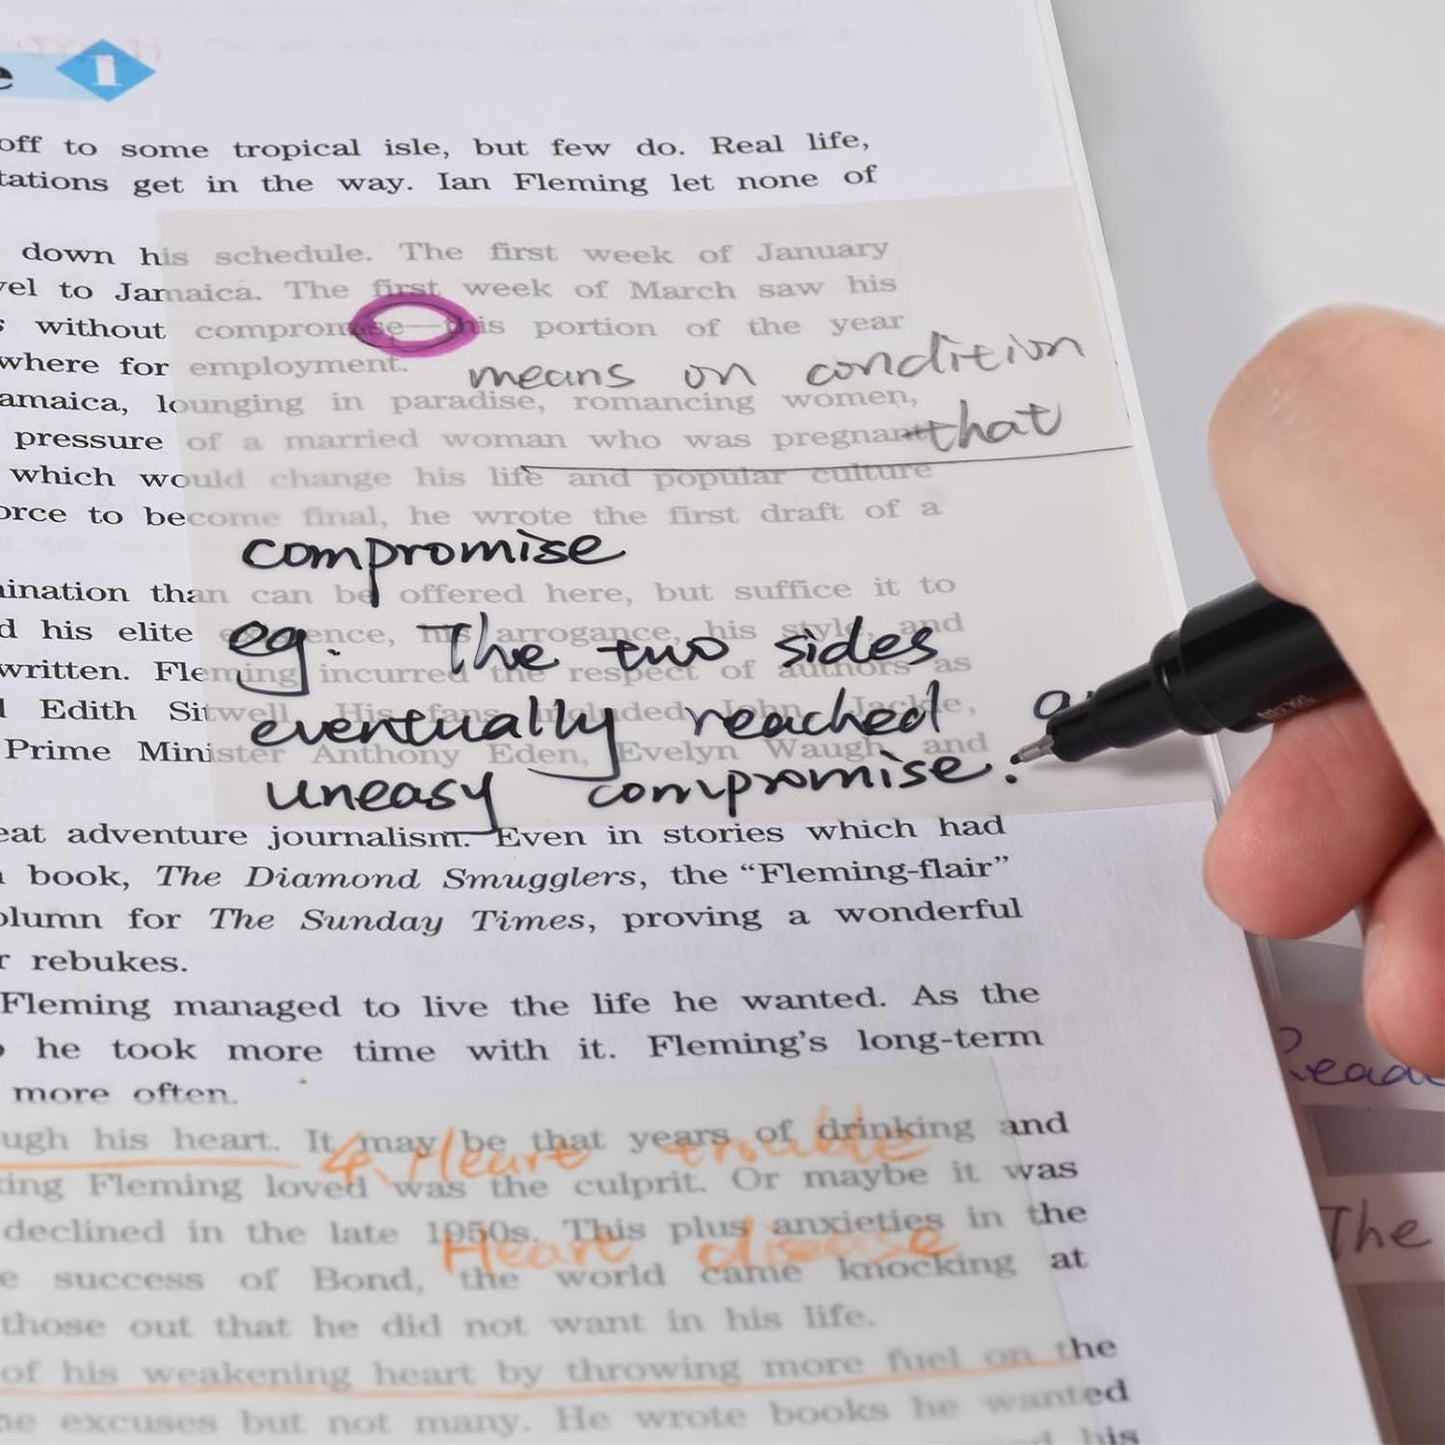 1
off to some tropical isle, but few do. Real life,
get in the way. Ian Fleming let none of
down his schedule. The first week of January
to Jamaica. The first week of March saw his
without compromise—this portion of the year
where for employment.
means on condition
lounging in paradise, romancing women,
that
pressure of a married woman who was pregnant
which would change his life and popular culture
to become final, he wrote the first draft of a
compromise
than can be offered here, but suffice it to
his elite his arrogance, his style, and
eg. The two sides
written. Fleming incurred the respect of authors as
Edith Sitwell. His fans included John
eventually reached a
Prime Minister Anthony Eden, Evelyn Waugh and
uneasy compromise.
adventure journalism. Even in stories which had
book, The Diamond Smugglers, the “Fleming-flair”
for The Sunday Times, proving a wonderful
rebukes.
Fleming managed to live the life he wanted. As the
he took more time with it. Fleming's long-term
more often.
his heart. It may be that years of drinking and
4. Heart trouble
Fleming loved was the culprit. Or maybe it was
declined in the late 1950s. This plus anxieties in the
Heart disease
success of Bond, the world came knocking at
those out that he did not want in his life.
of his weakening heart by throwing more fuel on the
excuses but not many. He wrote books he wanted
his
The